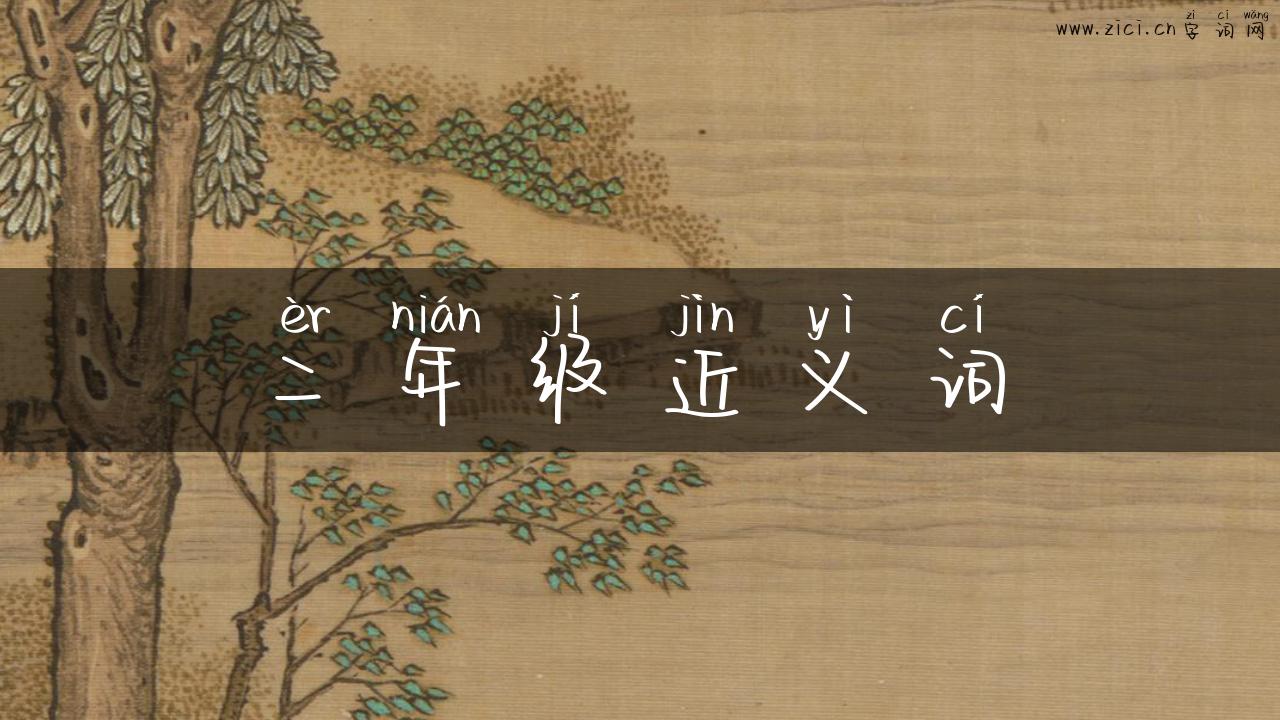 zì cí wǎng
www.zici.cn 字词网
èr nián jí jìn yì cí
二年级近义词